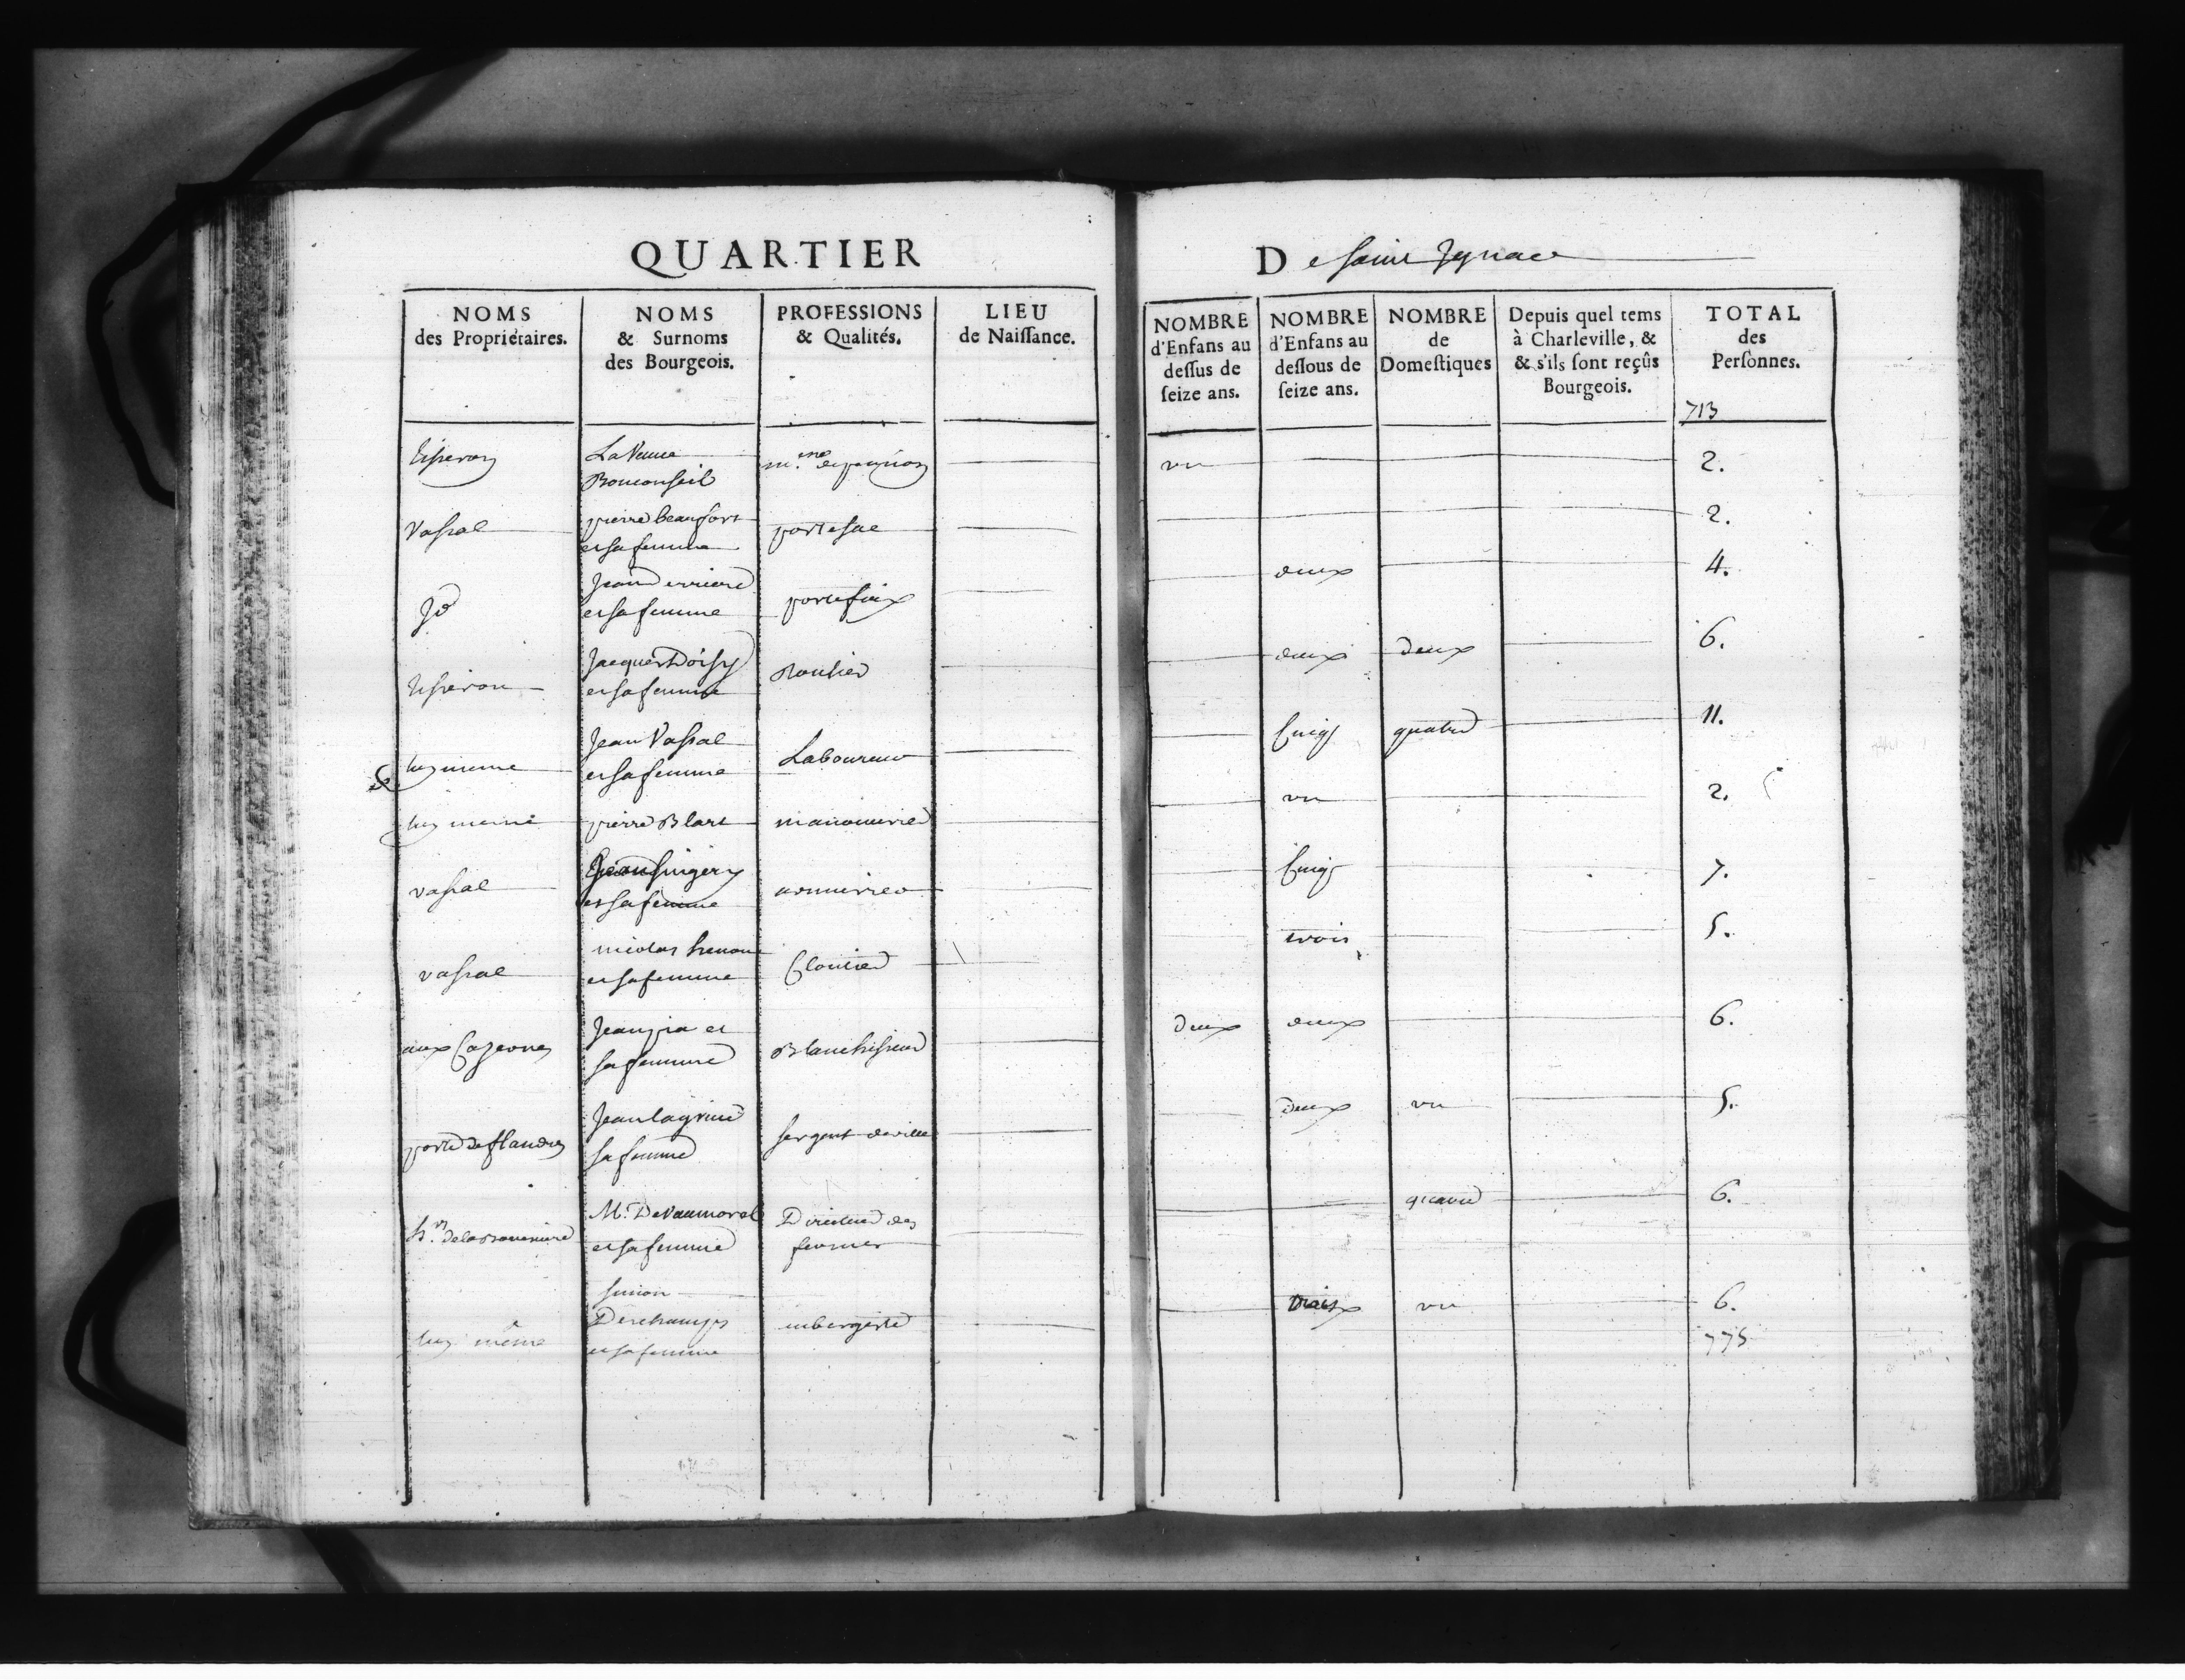 QUARTIER
De saint Jgnace
NOMS
des Propriétaires.
NOMS
& Surnoms
des Bourgeois.
PROFESSIONS
& Qualités.
LIEU
de Naissance.
NOMBRE
d'Enfans au
dessus de
seize ans.
NOMBRE
d'Enfans au
dessous de
seize ans.
NOMBRE
de
Domestiques
Depuis quel tems
à Charleville, &
& s'ils sont reçûs
Bourgeois.
TOTAL
des
Personnes.
713
La Veuve
Bonconseil
un
2.
Vassal
pierre beaufort
et sa femme
portesac
2.
Jd
Jean
et sa femme
portefaix
deux
4.
Jacques Doisy
et sa femme
Roulier
deux
deux
6.
luy meme
Jean Vassal
et sa femme
Laboureur
Cinq
quatre
11.
luy meme
pierre Blart
manouvrier
un
2.
vassal
Jean singery
et sa femme
armurier
Cinq
7.
vassal
nicolas
et sa femme
Cloutier
trois
5.
aux Cazernes
Jean pia et
sa femme
Blanchisseur
Deux
deux
6.
porte de flandres
Jean lagrive
sa femme
sergent de ville
Deux
un
5.
M. De Vaumorel
et sa femme
Directeur des
fermes
quatre
6.
luy même
simon
Deschamps
et sa femme
aubergiste
trois
un
6.
775